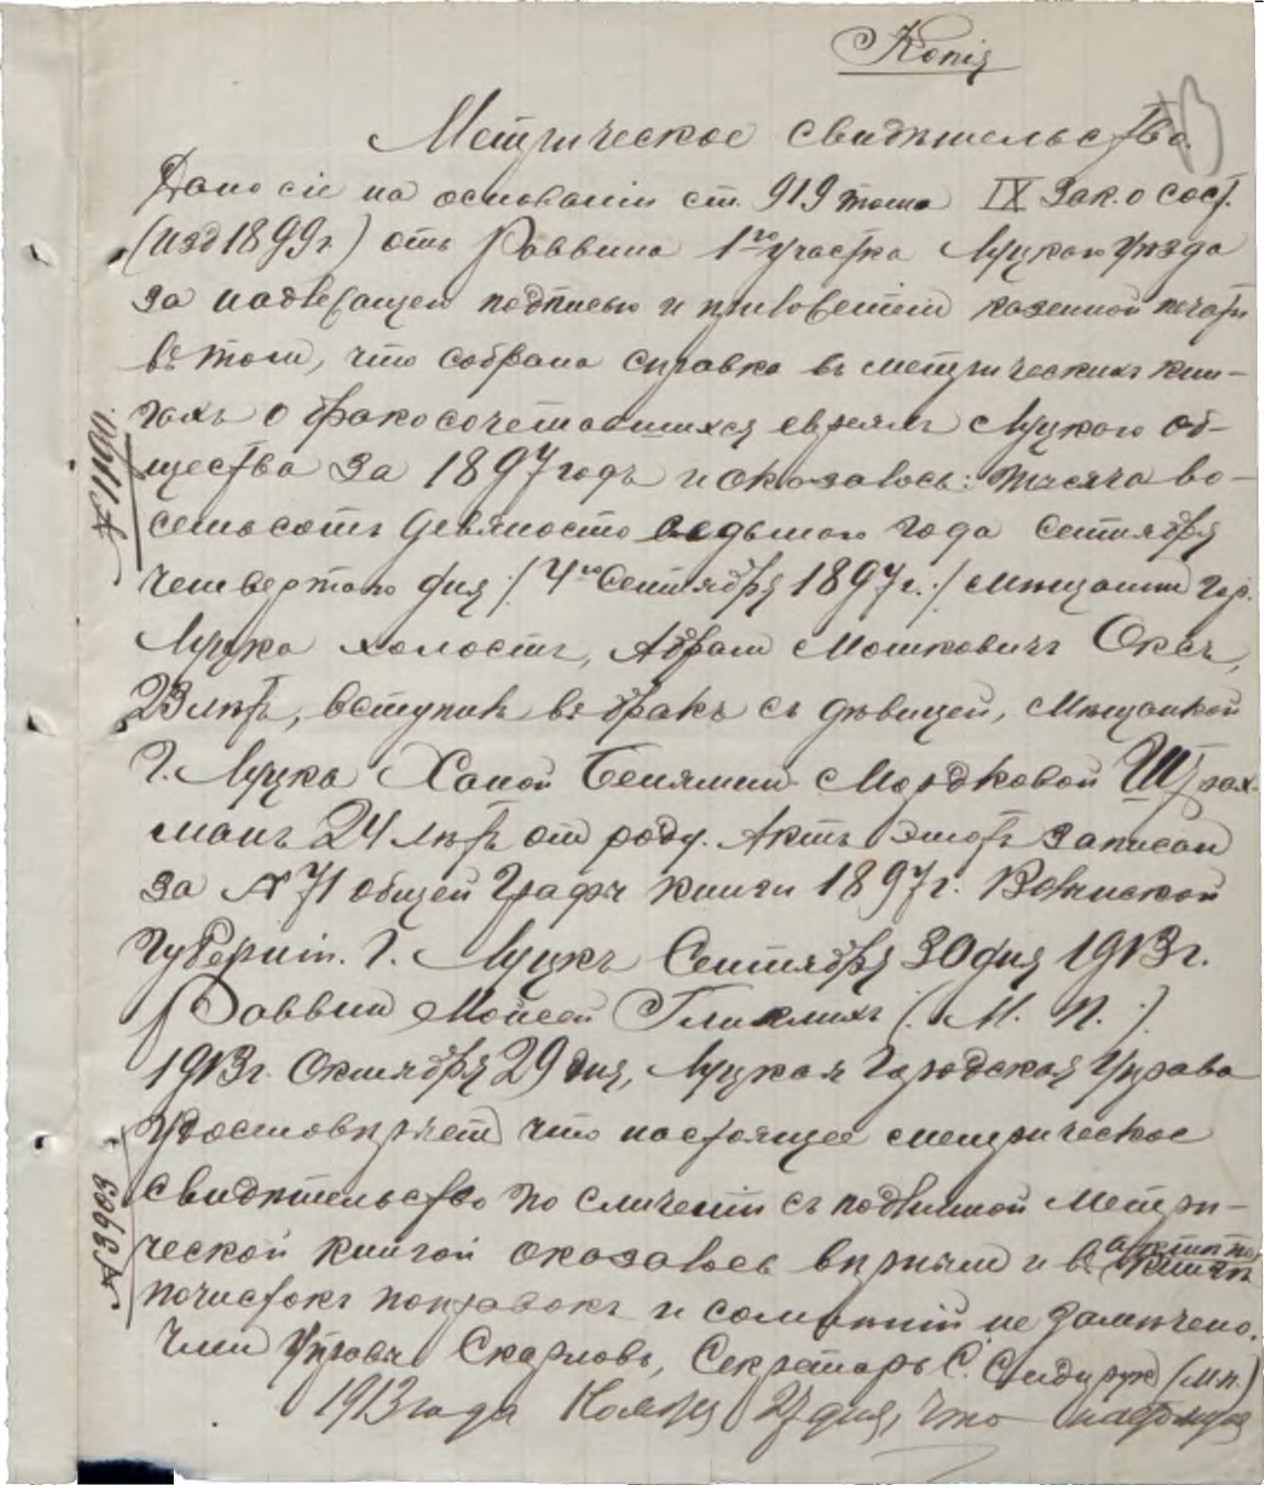 Копія
Метрическое свидѣтельство.
Дано сіе на основаніи ст. 919 тома IX Зак. о сост.
(изд 1899 г.) отъ Раввина 1го участка Луцкаго уѣзда
за надлежащей подписью и приложеніем казенной печати
въ том, что собрана справка въ метрическихъ кни-
гахъ о бракосочетавшихся евреямъ Луцкаго об-
щества за 1897 годъ и оказалось: тысяча во-
семьсотъ девяносто седьмого года Сентября
четвертаго дня /: 4го Сентября 1897 г. :/ мѣщанин гор.
Луцка холостъ, Абрам Мошковичъ Оксъ,
23 лѣтъ, вступилъ въ бракъ съ дѣвицей, Мѣщанкой
г. Луцка Ханой Бениамин-Мордковой Штрах-
манъ 24 лѣтъ от роду. Актъ этотъ записан
за № 71 общей графы книги 1897 г. Волынской
Губерніи. г. Луцкъ Сентября 30 дня 1913 г.
Раввин Мойсей Гликлихъ (: М. П. :)
1913 г. Октября 29 дня, Луцкая Городская Управа
удостовѣряет что настоящее метрическое
свидѣтельство по сличеніи съ подлинной Метри-
ческой книгой оказалось вѣрным и въ книгѣ актѣ по
почистокъ поправокъ и сомнѣній не замѣчено.
Член Управы Скарловъ, Секретарь С. Сидорук (М.п.)
1913 года Ноября 27 дня, что настоящая
№ 1100.
№ 3903